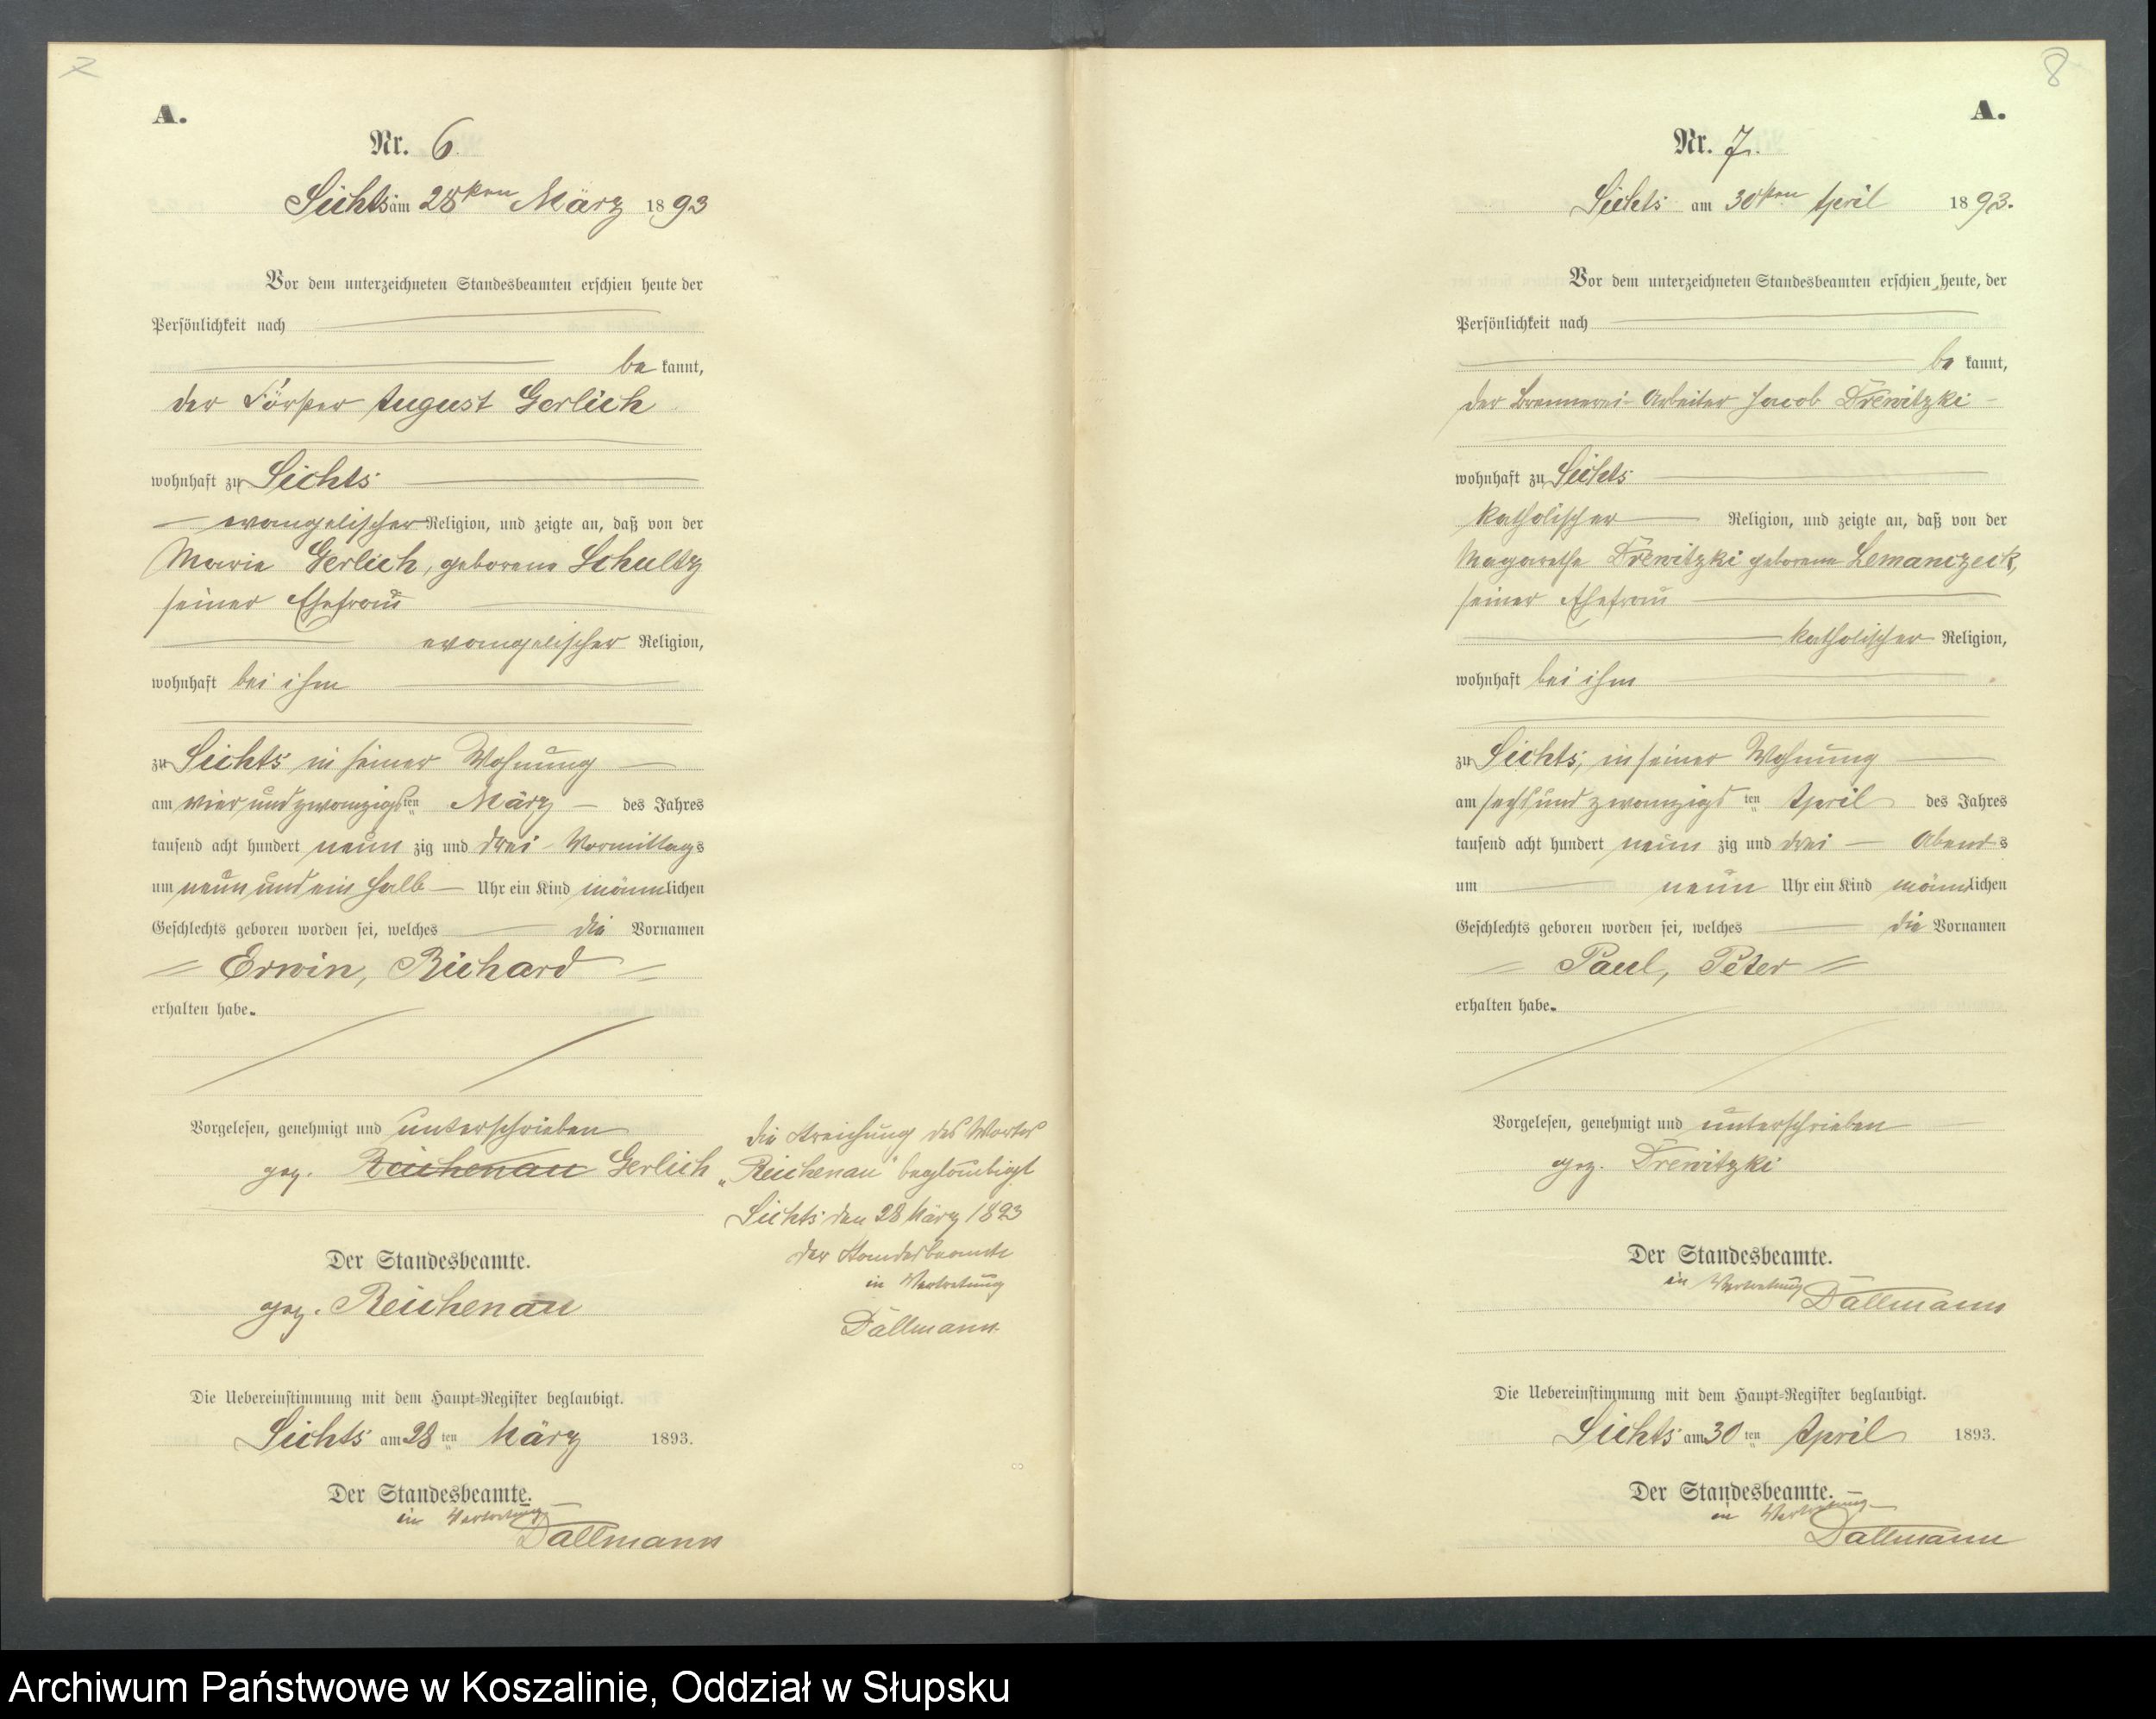 7
A.
Nr. 6.
Sichts am 28ten März 1893
Vor dem unterzeichneten Standesbeamten erschien heute der
Persönlichkeit nach
be kannt,
der Förster August Gerlich
wohnhaft zu Sichts
evangelischer Religion, und zeigte an, daß von der
Marie Gerlich, geborene Schultz
seiner Ehefrau
evangelischer Religion,
wohnhaft bei ihm
zu Sichts in seiner Wohnung
am vier und zwanzigsten März des Jahres
tausend acht hundert neun zig und drei Vormittags
um neun und ein halb Uhr ein Kind männlichen
Geschlechts geboren worden sei, welches die Vornamen
Erwin, Richard
erhalten habe.
Vorgelesen, genehmigt und unterschrieben
gez. Reichenau Gerlich
Der Standesbeamte.
gez. Reichenau
Die Uebereinstimmung mit dem Haupt-Register beglaubigt.
Sichts am 28ten März 1893.
Der Standesbeamte.
in Vertretung
Dallmann
die Streichung des Wortes
"Reichenau" beglaubigt
Sichts den 28 März 1893
der Standesbeamte
in Vertretung
Dallmann
8
A.
Nr. 7.
Sichts am 30ten April 1893.
Vor dem unterzeichneten Standesbeamten erschien heute, der
Persönlichkeit nach
be kannt,
der Brennerei-Arbeiter Jacob Drewitzki
wohnhaft zu Sichts
katholischer Religion, und zeigte an, daß von der
Magarethe Drewitzki geborene Lemanczeck,
seiner Ehefrau
katholischer Religion,
wohnhaft bei ihm
zu Sichts, in seiner Wohnung
am sechs und zwanzigsten April des Jahres
tausend acht hundert neun zig und drei Abends
um neun Uhr ein Kind männlichen
Geschlechts geboren worden sei, welches die Vornamen
Paul, Peter
erhalten habe.
Vorgelesen, genehmigt und unterschrieben
gez. Drewitzki
Der Standesbeamte.
in Vertretung Dallmann
Die Uebereinstimmung mit dem Haupt-Register beglaubigt.
Sichts am 30ten April 1893.
Der Standesbeamte.
in Vertretung
Dallmann
Archiwum Państwowe w Koszalinie, Oddział w Słupsku